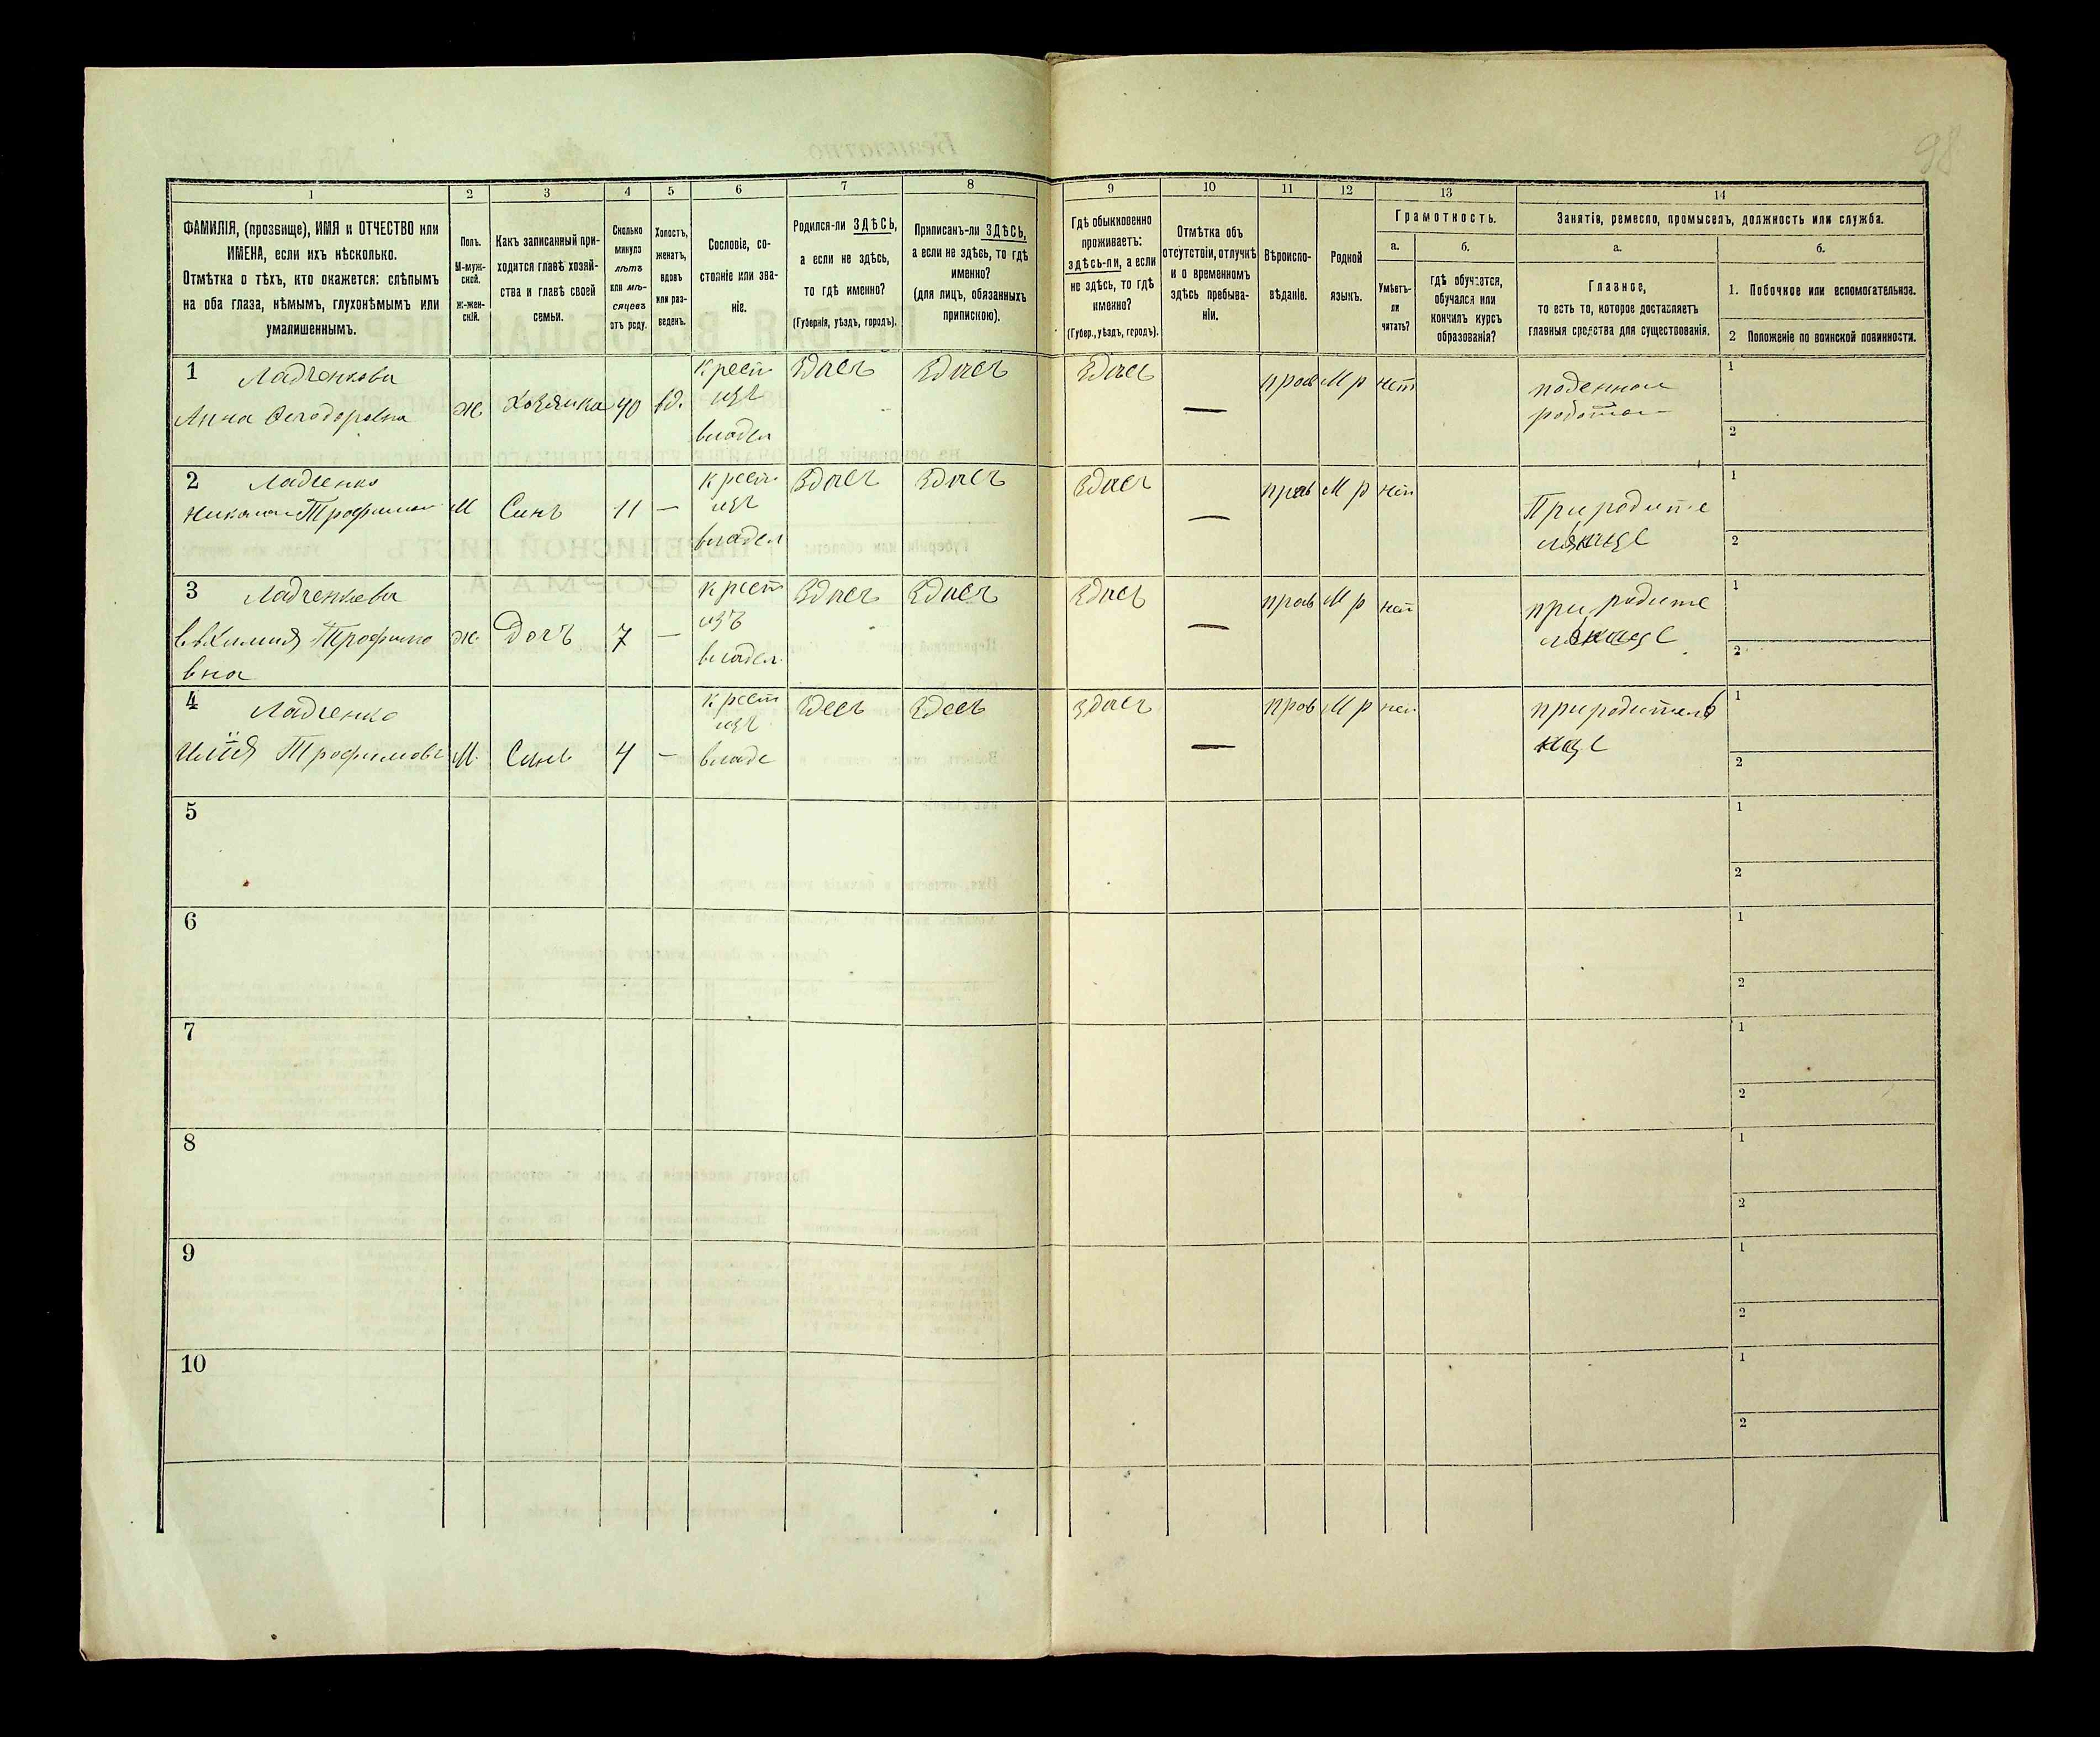 98
1 2 3 4 5 6 7 8 9 10 11 12 13 14
ФАМИЛІЯ, (прозвище), ИМЯ и ОТЧЕСТВО или
ИМЕНА, если ихъ нѣсколько.
Отмѣтка о тѣхъ, кто окажется: слѣпымъ
на оба глаза, нѣмымъ, глухонѣмымъ или
умалишеннымъ.
Полъ.
М-муж-
ской.
Ж-жен-
скій.
Какъ записанный при-
ходится главѣ хозяй-
ства и главѣ своей
семьи.
Сколько
минуло
лѣтъ
или мѣ-
сяцевъ
отъ роду.
Холостъ,
женатъ,
вдовъ
или раз-
веденъ.
Сословіе, со-
стояніе или зва-
ніе.
Родился-ли ЗДѢСЬ,
а если не здѣсь,
то гдѣ именно?
(Губернія, уѣздъ, городъ).
Приписанъ-ли ЗДѢСЬ,
а если не здѣсь, то гдѣ
именно?
(для лицъ, обязанныхъ
припискою).
Гдѣ обыкновенно
проживаетъ:
здѣсь-ли, а если
не здѣсь, то гдѣ
именно?
(Губер., уѣздъ, городъ).
Отмѣтка объ
отсутствіи, отлучкѣ
и о временномъ
здѣсь пребыва-
ніи.
Вѣроиспо-
вѣданіе.
Родной
языкъ.
Грамотность.
а.
Умѣетъ-
ли
читать?
б.
гдѣ обучается,
обучался или
кончилъ курсъ
образованія?
Занятіе, ремесло, промыселъ, должность или служба.
а.
Главное,
то есть то, которое доставляетъ
главныя средства для существованія.
б.
1. Побочное или вспомогательное.
2 Положеніе по воинской повинности.
1 Ладченкова
Анна Феодоровна
ж
Хозяика
40
вд.
крест
изъ
владел
Здѣсъ
Здѣсъ
Здѣсъ
—
прав
М р
нет
поденная
работа
1
2
2 Ладченко
Николай Трофимов
М
Синъ
11
—
крест
изъ
владел
Здѣсъ
Здѣсъ
Здѣсъ
—
прав
М р
нет
При родите
1
2
3 Ладченкова
Трофимо
вна
ж.
Дочъ
7
—
крест
изъ
владел
Здѣсъ
Здѣсъ
Здѣсъ
—
прав
М р
нет
при родите
1
2
4 Ладченко
Илия Трофимовъ
М.
Синъ
4
—
крест
изъ
владе
Здесъ
Здесъ
здѣсъ
—
прав
М р
нет
1
2
5
1
2
6
1
2
7
1
2
8
1
2
9
1
2
10
1
2